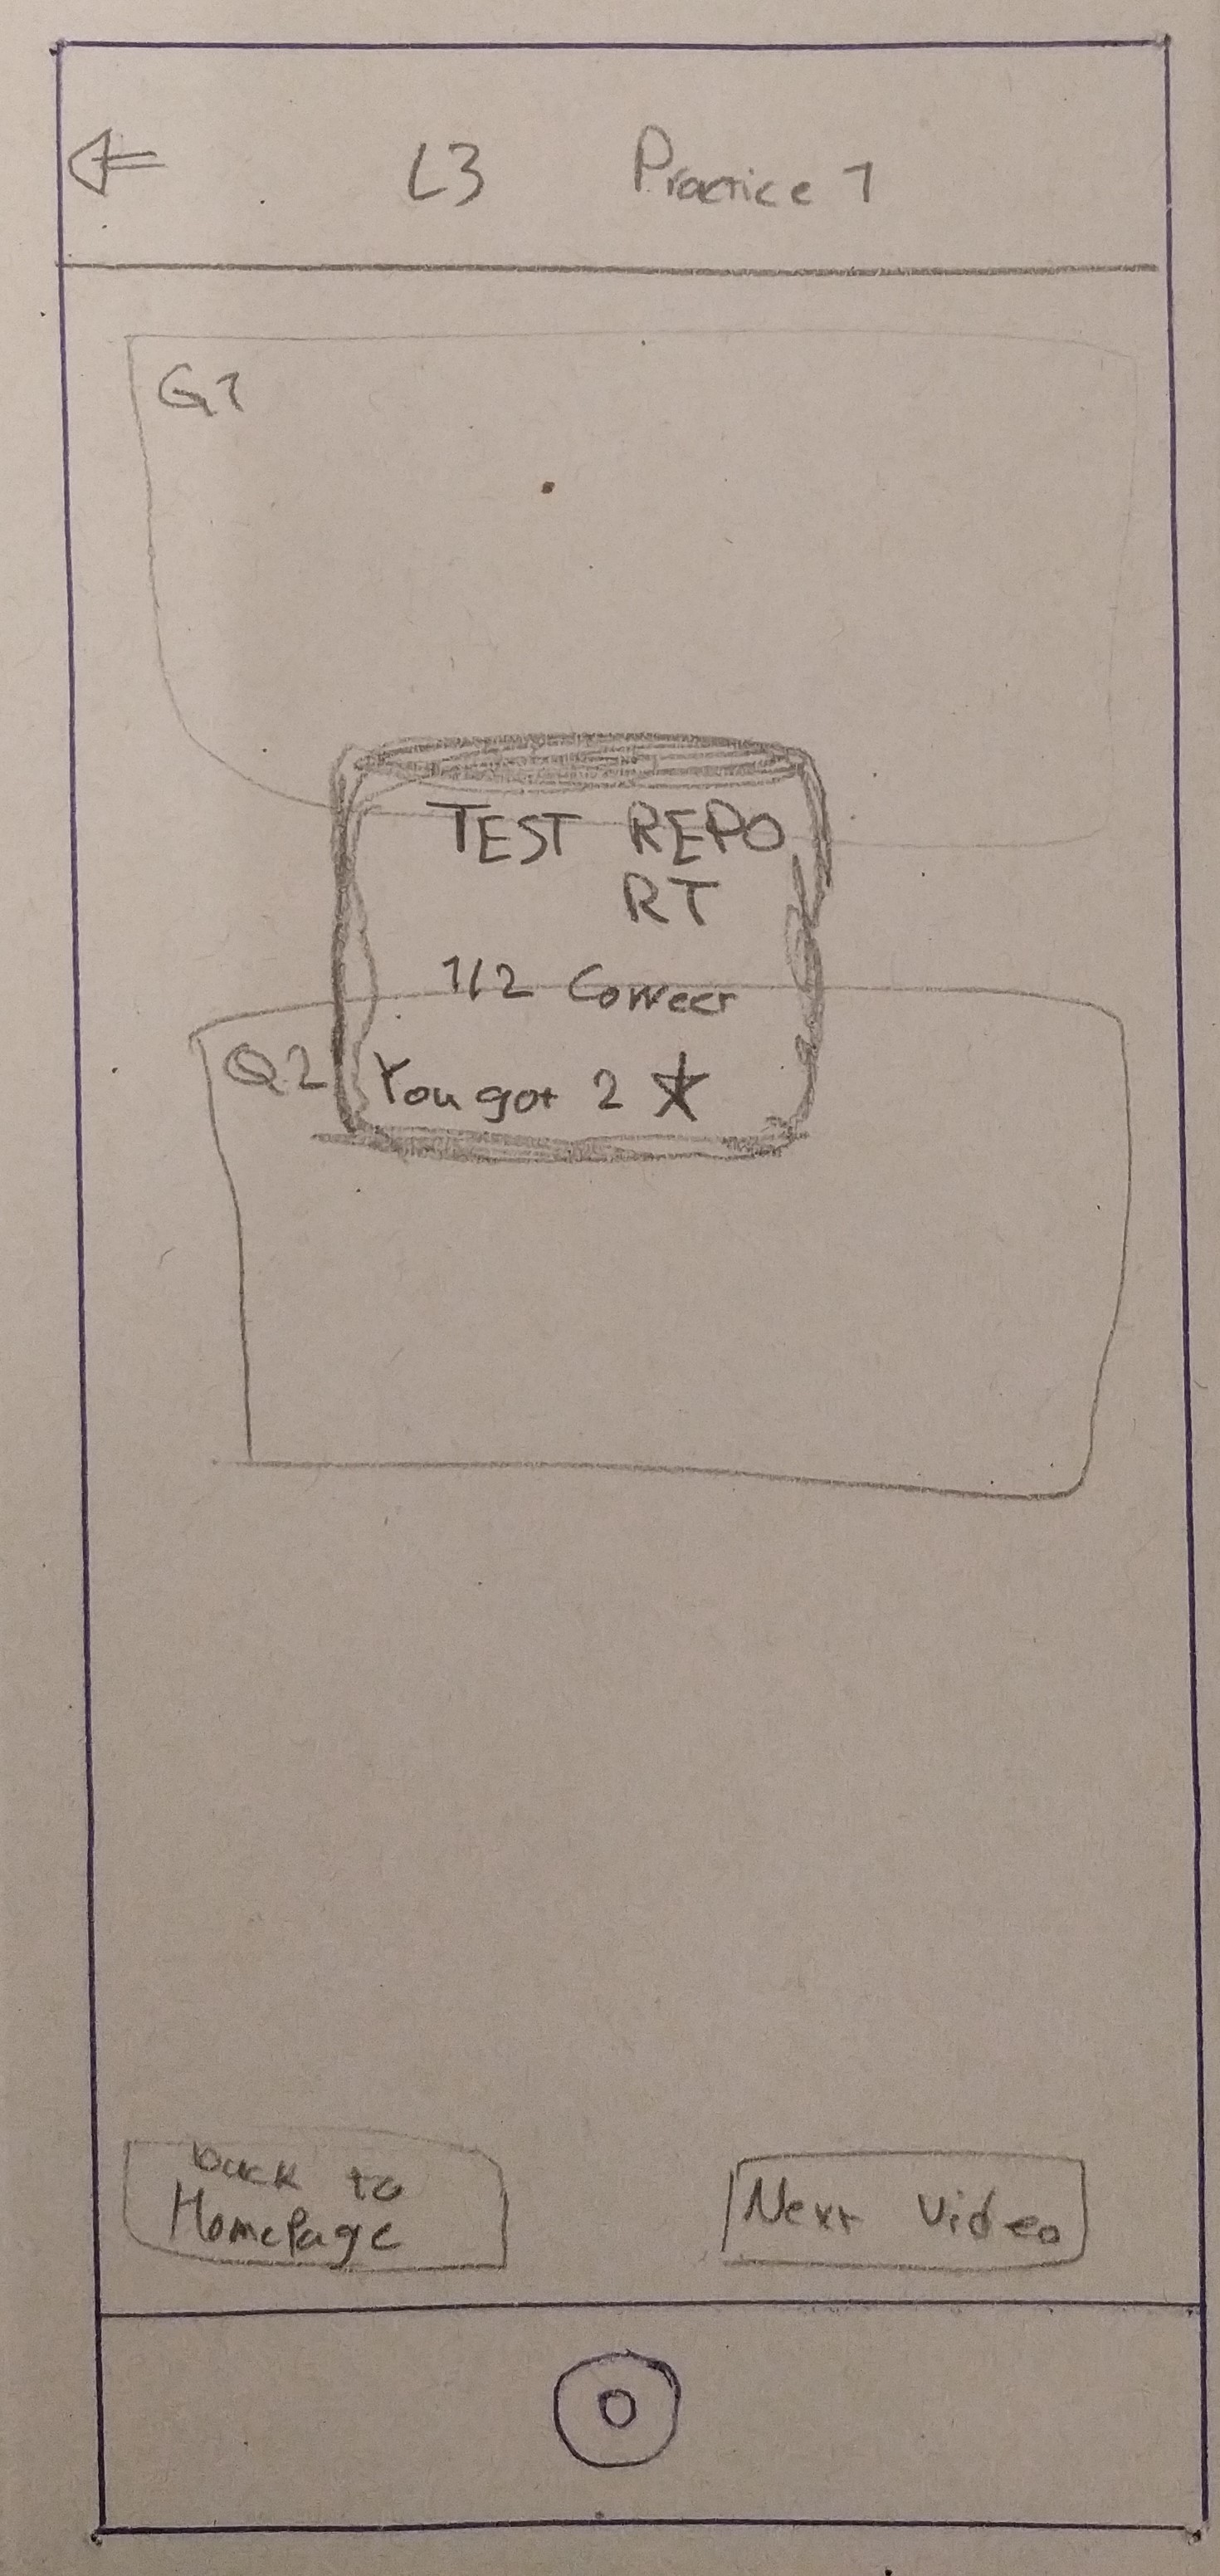 L3 Practice 1
Q1
TEST REPO
RT
1/2 Correct
Q2
You got 2
back to
HomePage
Next Video